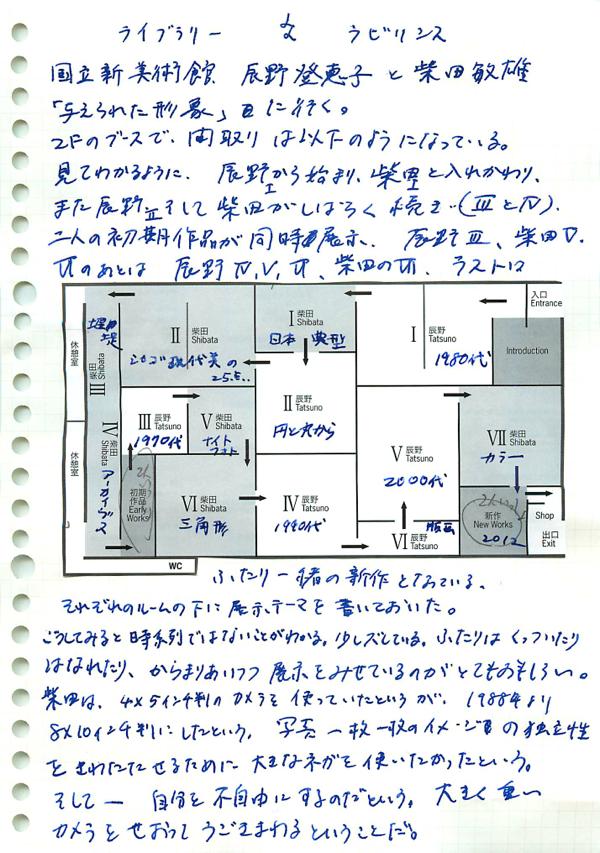 ライブラリー & ラビリンス
国立新美術館 辰野登恵子と柴田敏雄
「与えられた形象」に行く。
2Fのブースで、間取りは以下のようになっている。
見てわかるように、辰野Ⅰから始まり、柴田Ⅰと入れかわり、
また辰野Ⅱそして柴田がしばらく続き(ⅢとⅣ)、
二人の初期作品が同時展示、辰野Ⅲ、柴田Ⅴ、
Ⅵのあとは 辰野Ⅳ、Ⅴ、Ⅵ、柴田のⅦ、ラストは
休憩室
柴田 Shibata Ⅲ
Ⅱ 柴田 Shibata
Ⅰ 柴田 Shibata
日本 典型
Ⅰ 辰野 Tatsuno
1980代
入口 Entrance
Introduction
休憩室
Ⅳ 柴田 Shibata
アーカイブス
Ⅲ 辰野 Tatsuno
1970代
Ⅴ 柴田 Shibata
ナイトフォト
Ⅱ 辰野 Tatsuno
円と丸から
Ⅴ 辰野 Tatsuno
2000代
Ⅶ 柴田 Shibata
カラー
初期作品 Early Works
Ⅵ 柴田 Shibata
三角形
Ⅳ 辰野 Tatsuno
1990代
Ⅵ 辰野 Tatsuno
版画
新作 New Works
2012
Shop
出口 Exit
WC
ふたり一緒の新作となっている。
それぞれのルームの下に展示テーマを書いておいた。
こうしてみると時系列ではないことがわかる。少しズレている。ふたりはくっついたり
はなれたり、からまりあいつつ展示をみせているのがとてもおもしろい。
柴田は、4×5インチ判のカメラを使っていたというが、1988年より
8×10インチ判にしたという。写真一枚一枚のイメージの独立性
をきわだたせるために大きなネガを使いたかったという。
そして— 自分を不自由にするのだという。大きく重い
カメラをせおってうごきまわるということだ。